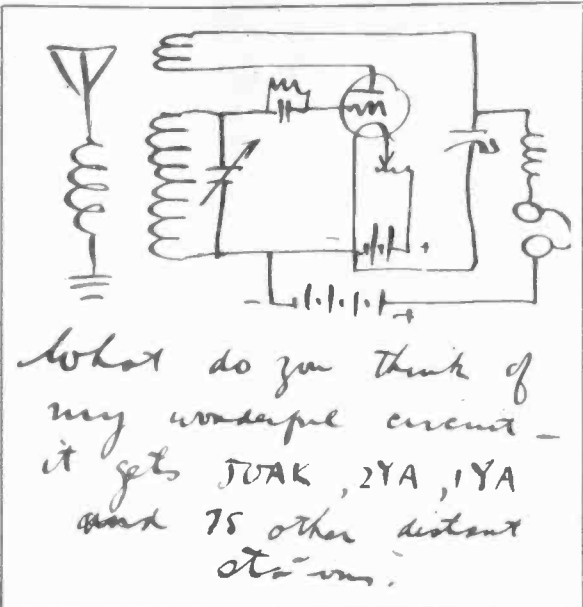 What do you think of
my wonderful circuit -
it gets JOAK, 2YA, 1YA
and 75 other distant
stations.